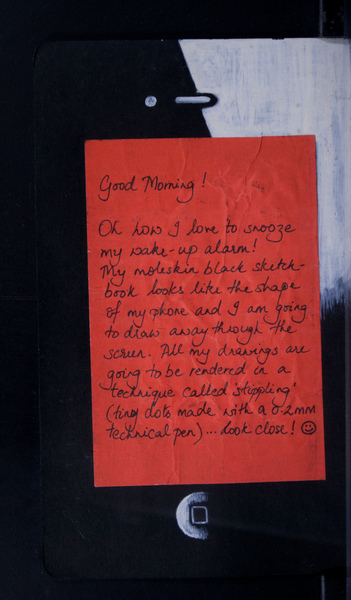 Good Morning!
Oh how I love to snooze
my wake-up alarm!
My moleskin black sketch-
book looks like the shape
of my phone and I am going
to draw away through the
screen. All my drawings are
going to be rendered in a
technique called 'stippling'
(tiny dots made with a 0.2mm
technical pen)... Look close! ☺